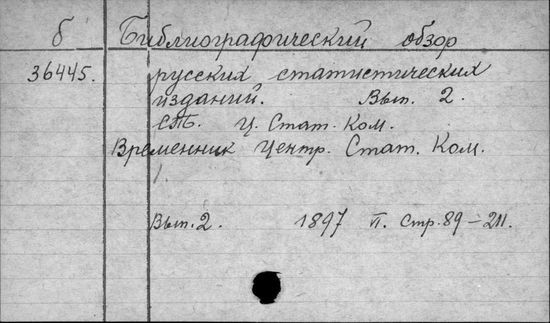 б Библиографический обзор
36445. русских статистических
изданий. Вып. 2.
Ц. Стат. Ком.
Временник Центр. Стат. Ком.
Вып. 2. 1897 П. Стр. 89–211.